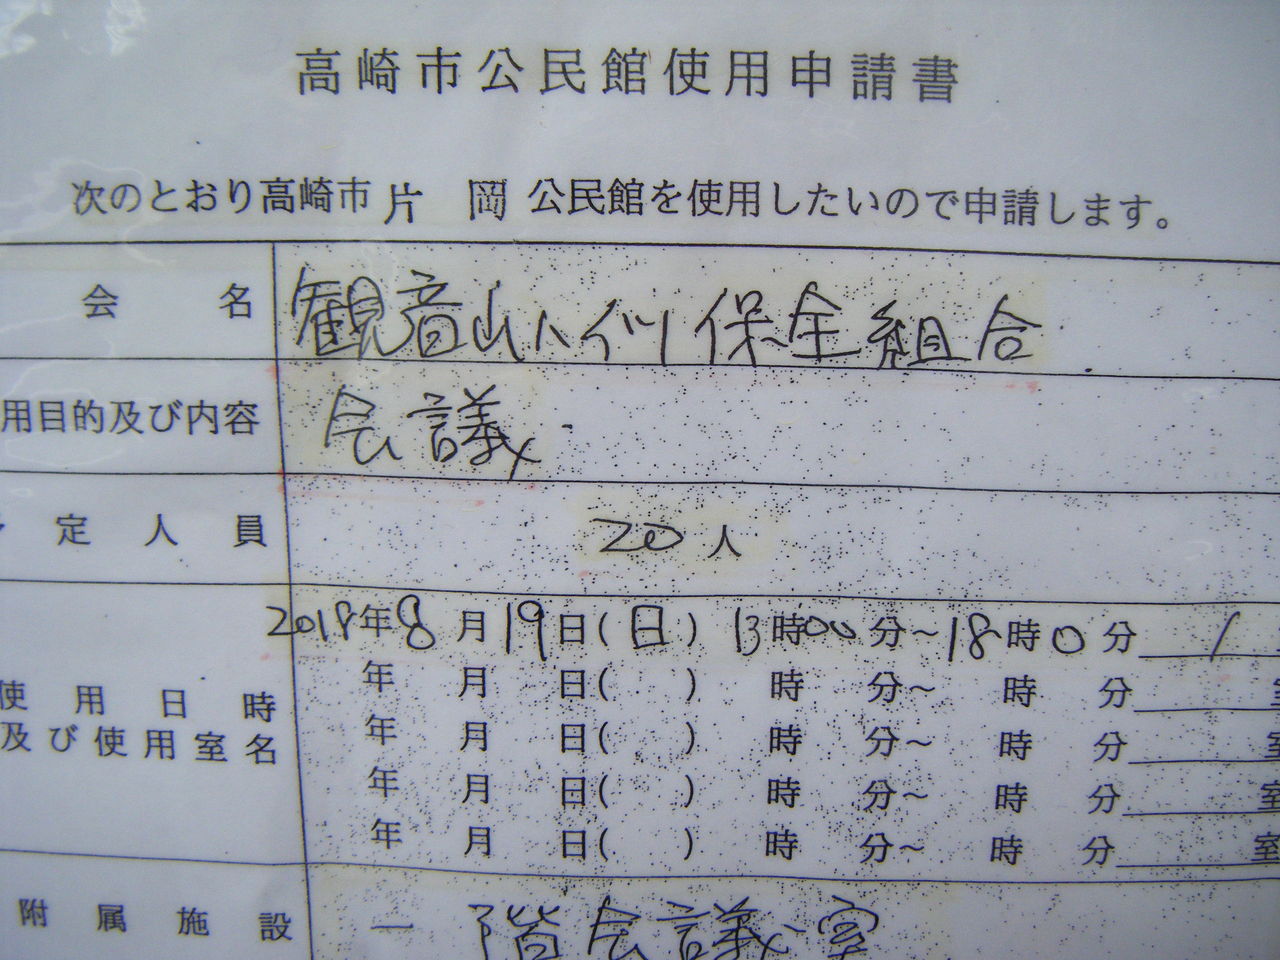 高崎市公民館使用申請書
次のとおり高崎市片岡公民館を使用したいので申請します。
会名 観音山ハイツ保全組合
用目的及び内容 会議
定人員 20人
2018年8月19日(日) 13時00分~18時0分
年 月 日( ) 時 分~ 時 分
使用日時 年 月 日( ) 時 分~ 時 分 室
及び使用室名 年 月 日( ) 時 分~ 時 分 室
年 月 日( ) 時 分~ 時 分 室
附属施設 一階会議室